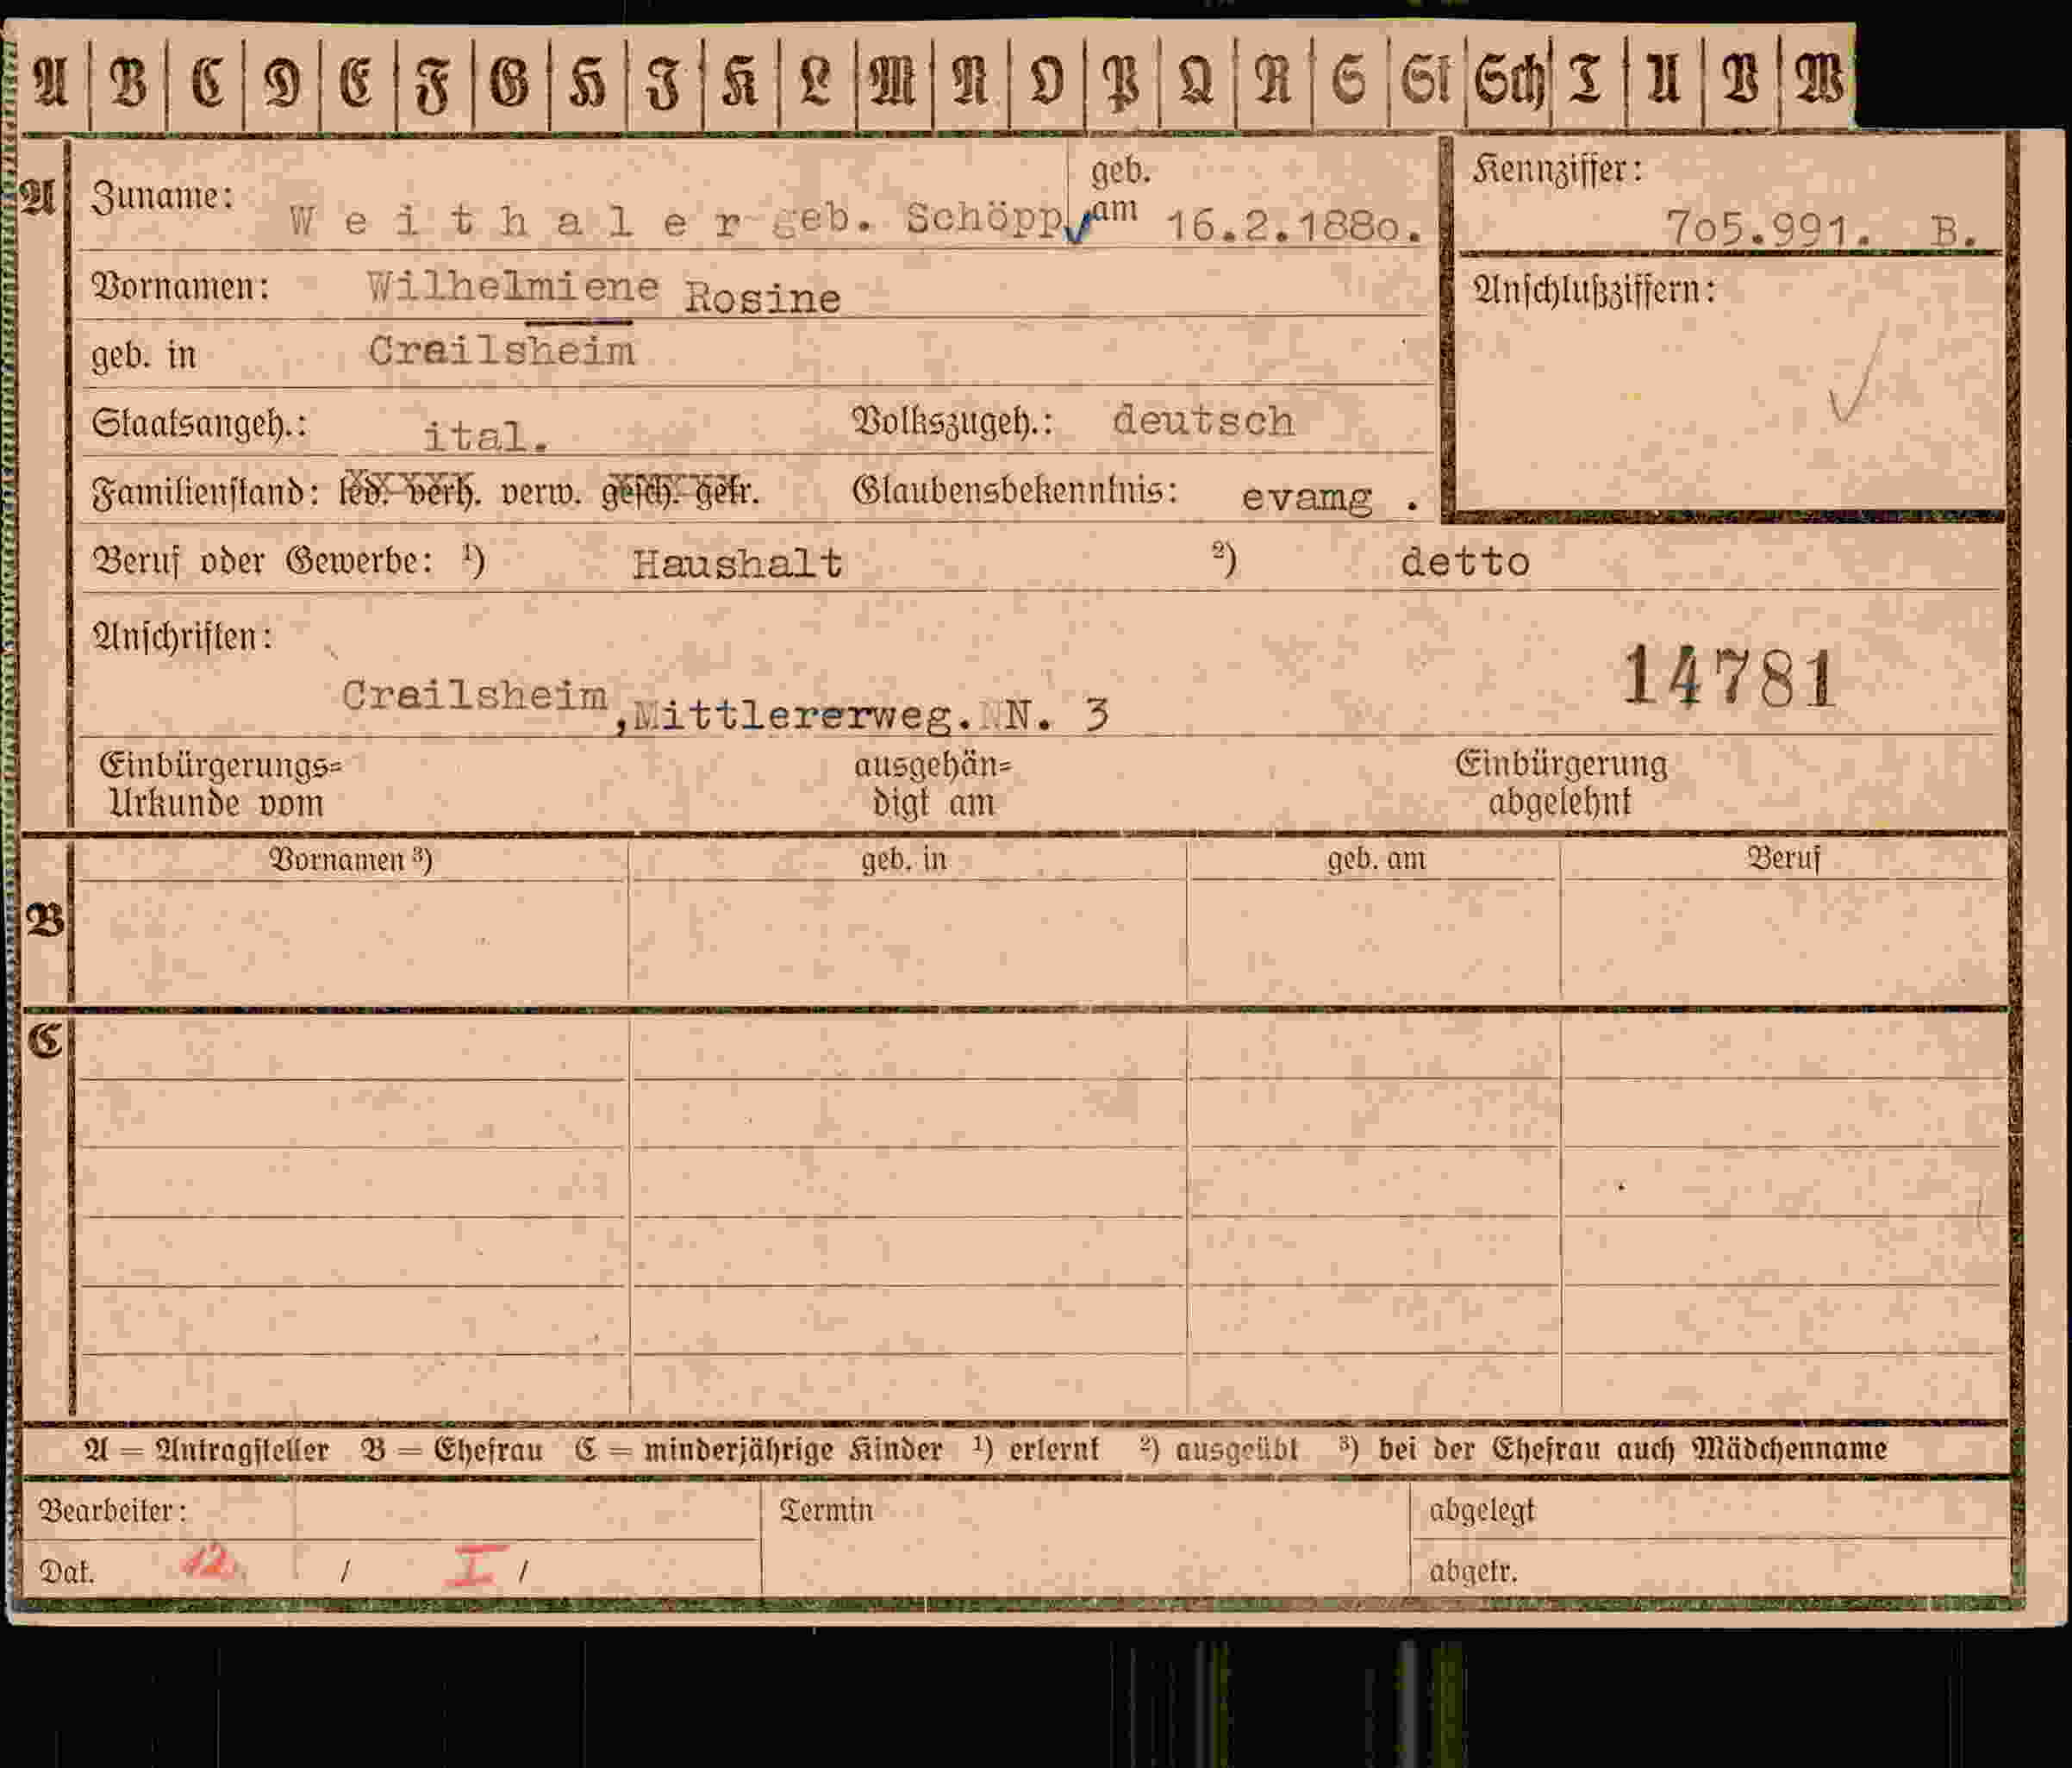 A B C D E F G H I K L M N O P Q R S St Sch T U V W
A
Zuname: Weithaler geb. Schöpp geb. am 16.2.188o.
Kennziffer: 7o5.991. B.
Vornamen: Wilhelmiene Rosine
Anschlußziffern:
geb. in Crailsheim
Staatsangeh.: ital. Volkszugeh.: deutsch
Familienstand: led. verh. verw. gesch. getr. Glaubensbekenntnis: evamg .
Beruf oder Gewerbe: ¹) Haushalt ²) detto
Anschriften:
14781
Crailsheim, Mittlererweg. N. 3
Einbürgerungs= ausgehän= Einbürgerung
Urkunde vom digt am abgelehnt
Vornamen ³) geb. in geb. am Beruf
B
C
A = Antragsteller B = Ehefrau C = minderjährige Kinder ¹) erlernt ²) ausgeübt ³) bei der Ehefrau auch Mädchenname
Bearbeiter: Termin abgelegt
Dat. 12. / I / abgetr.